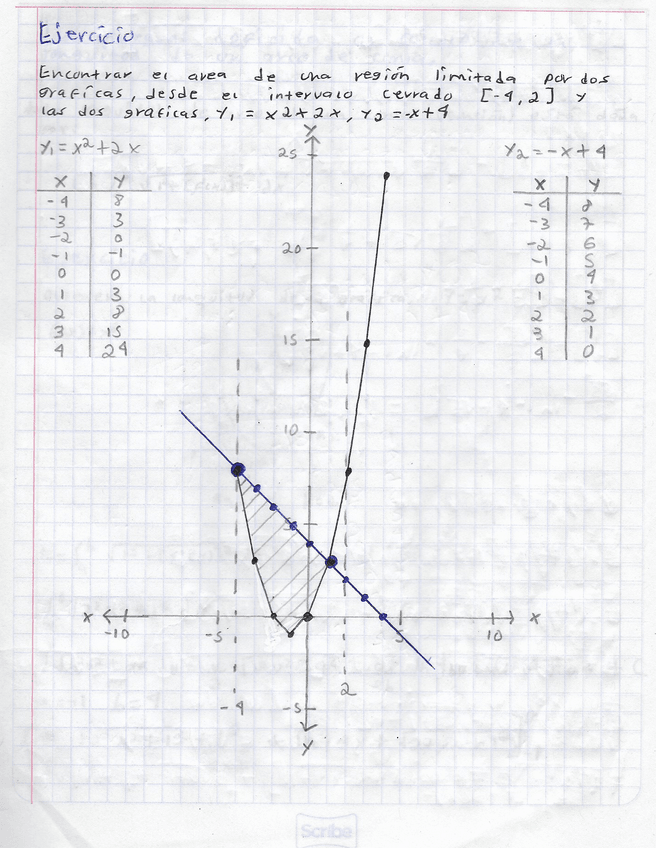 Ejercicio
Encontrar el area de una región limitada por dos
graficas, desde el intervalo cerrado [-4,2] y
las dos graficas, Y₁ = x2+2x, Y₂ = -x+4
Y₁ = x²+2x
X Y
-4 8
-3 3
-2 0
-1 -1
0 0
1 3
2 8
3 15
4 24
Y₂ = -x+4
X Y
-4 8
-3 7
-2 6
-1 5
0 4
1 3
2 2
3 1
4 0
Y
25
20
15
10
5
X -10 -5 5 10 X
-4 -5 2
Y
Scribe